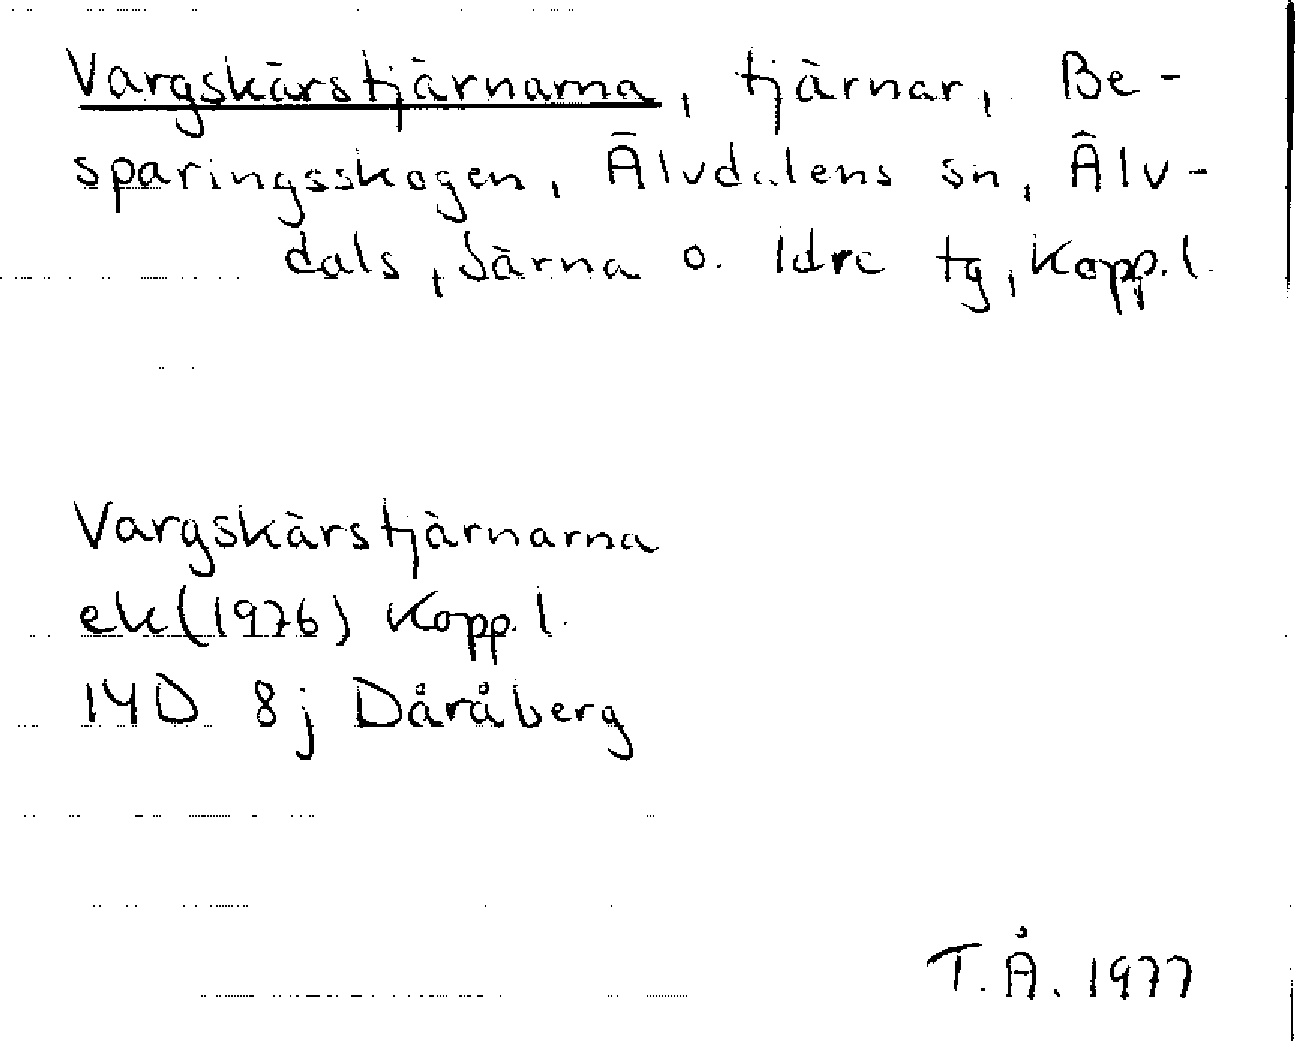 Vargskärstjärnarna, tjärnar, Be-
sparingsskogen, Älvdalens sn, Älv-
dals, Särna o. Idre tg, Kopp. l.
Vargskärstjärnarna
ek (1976) Kopp. l.
14D 8j Dåråberg
T. Å. 1977